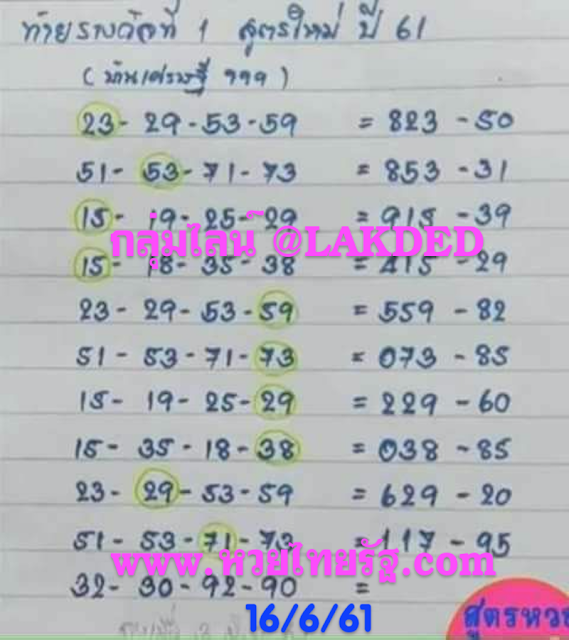 ทายรางวัลที่ 1 สูตรใหม่ ปี 61
(บ้านเศรษฐี ๆๆๆ)
23- 29-53-59 = 823 -50
51- 53-71-73 = 853 -31
15- 19-25-29 = 915 -39
กลุ่มไลน์ @LAKDED
15- 18-35-38 = 415 -29
23- 29-53-59 = 559 -82
51 - 53-71-73 = 073 -85
15- 19-25-29 = 229 -60
15- 35-18-38 = 038 -85
23- 29-53-59 = 629 -20
51- 53-71-73 = 117 -95
www.หวยไทยรัฐ.com
32- 30-92-90 =
16/6/61
สูตรหวย